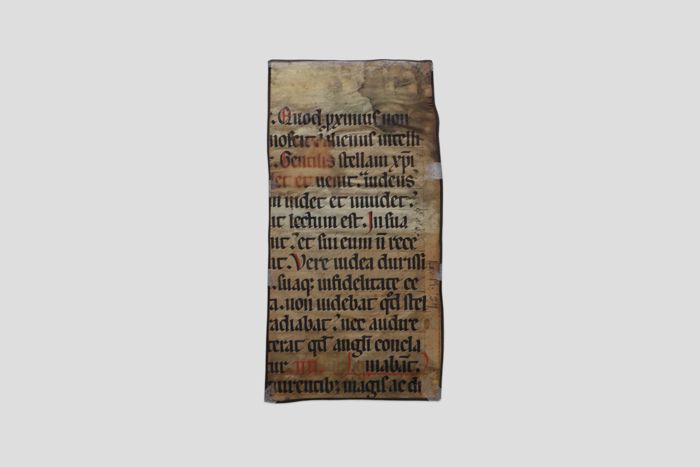 . Quod ꝓximus non
noscit ; alienus intelli
. Gentilis stellam xp̄i
et et uenit ; iudeus
m uidet et inuidet .
ut lectum est . In sua
nit . et sui eum n̄ rece
nt . Vere iudea durissi
. suaq; infidelitate ce
a . non uidebat qd̄ stel
adiabat ; nec audire
terat qd̄ angl̄i concla
tur IIII. L mabāt .
uirentib; magis ac di